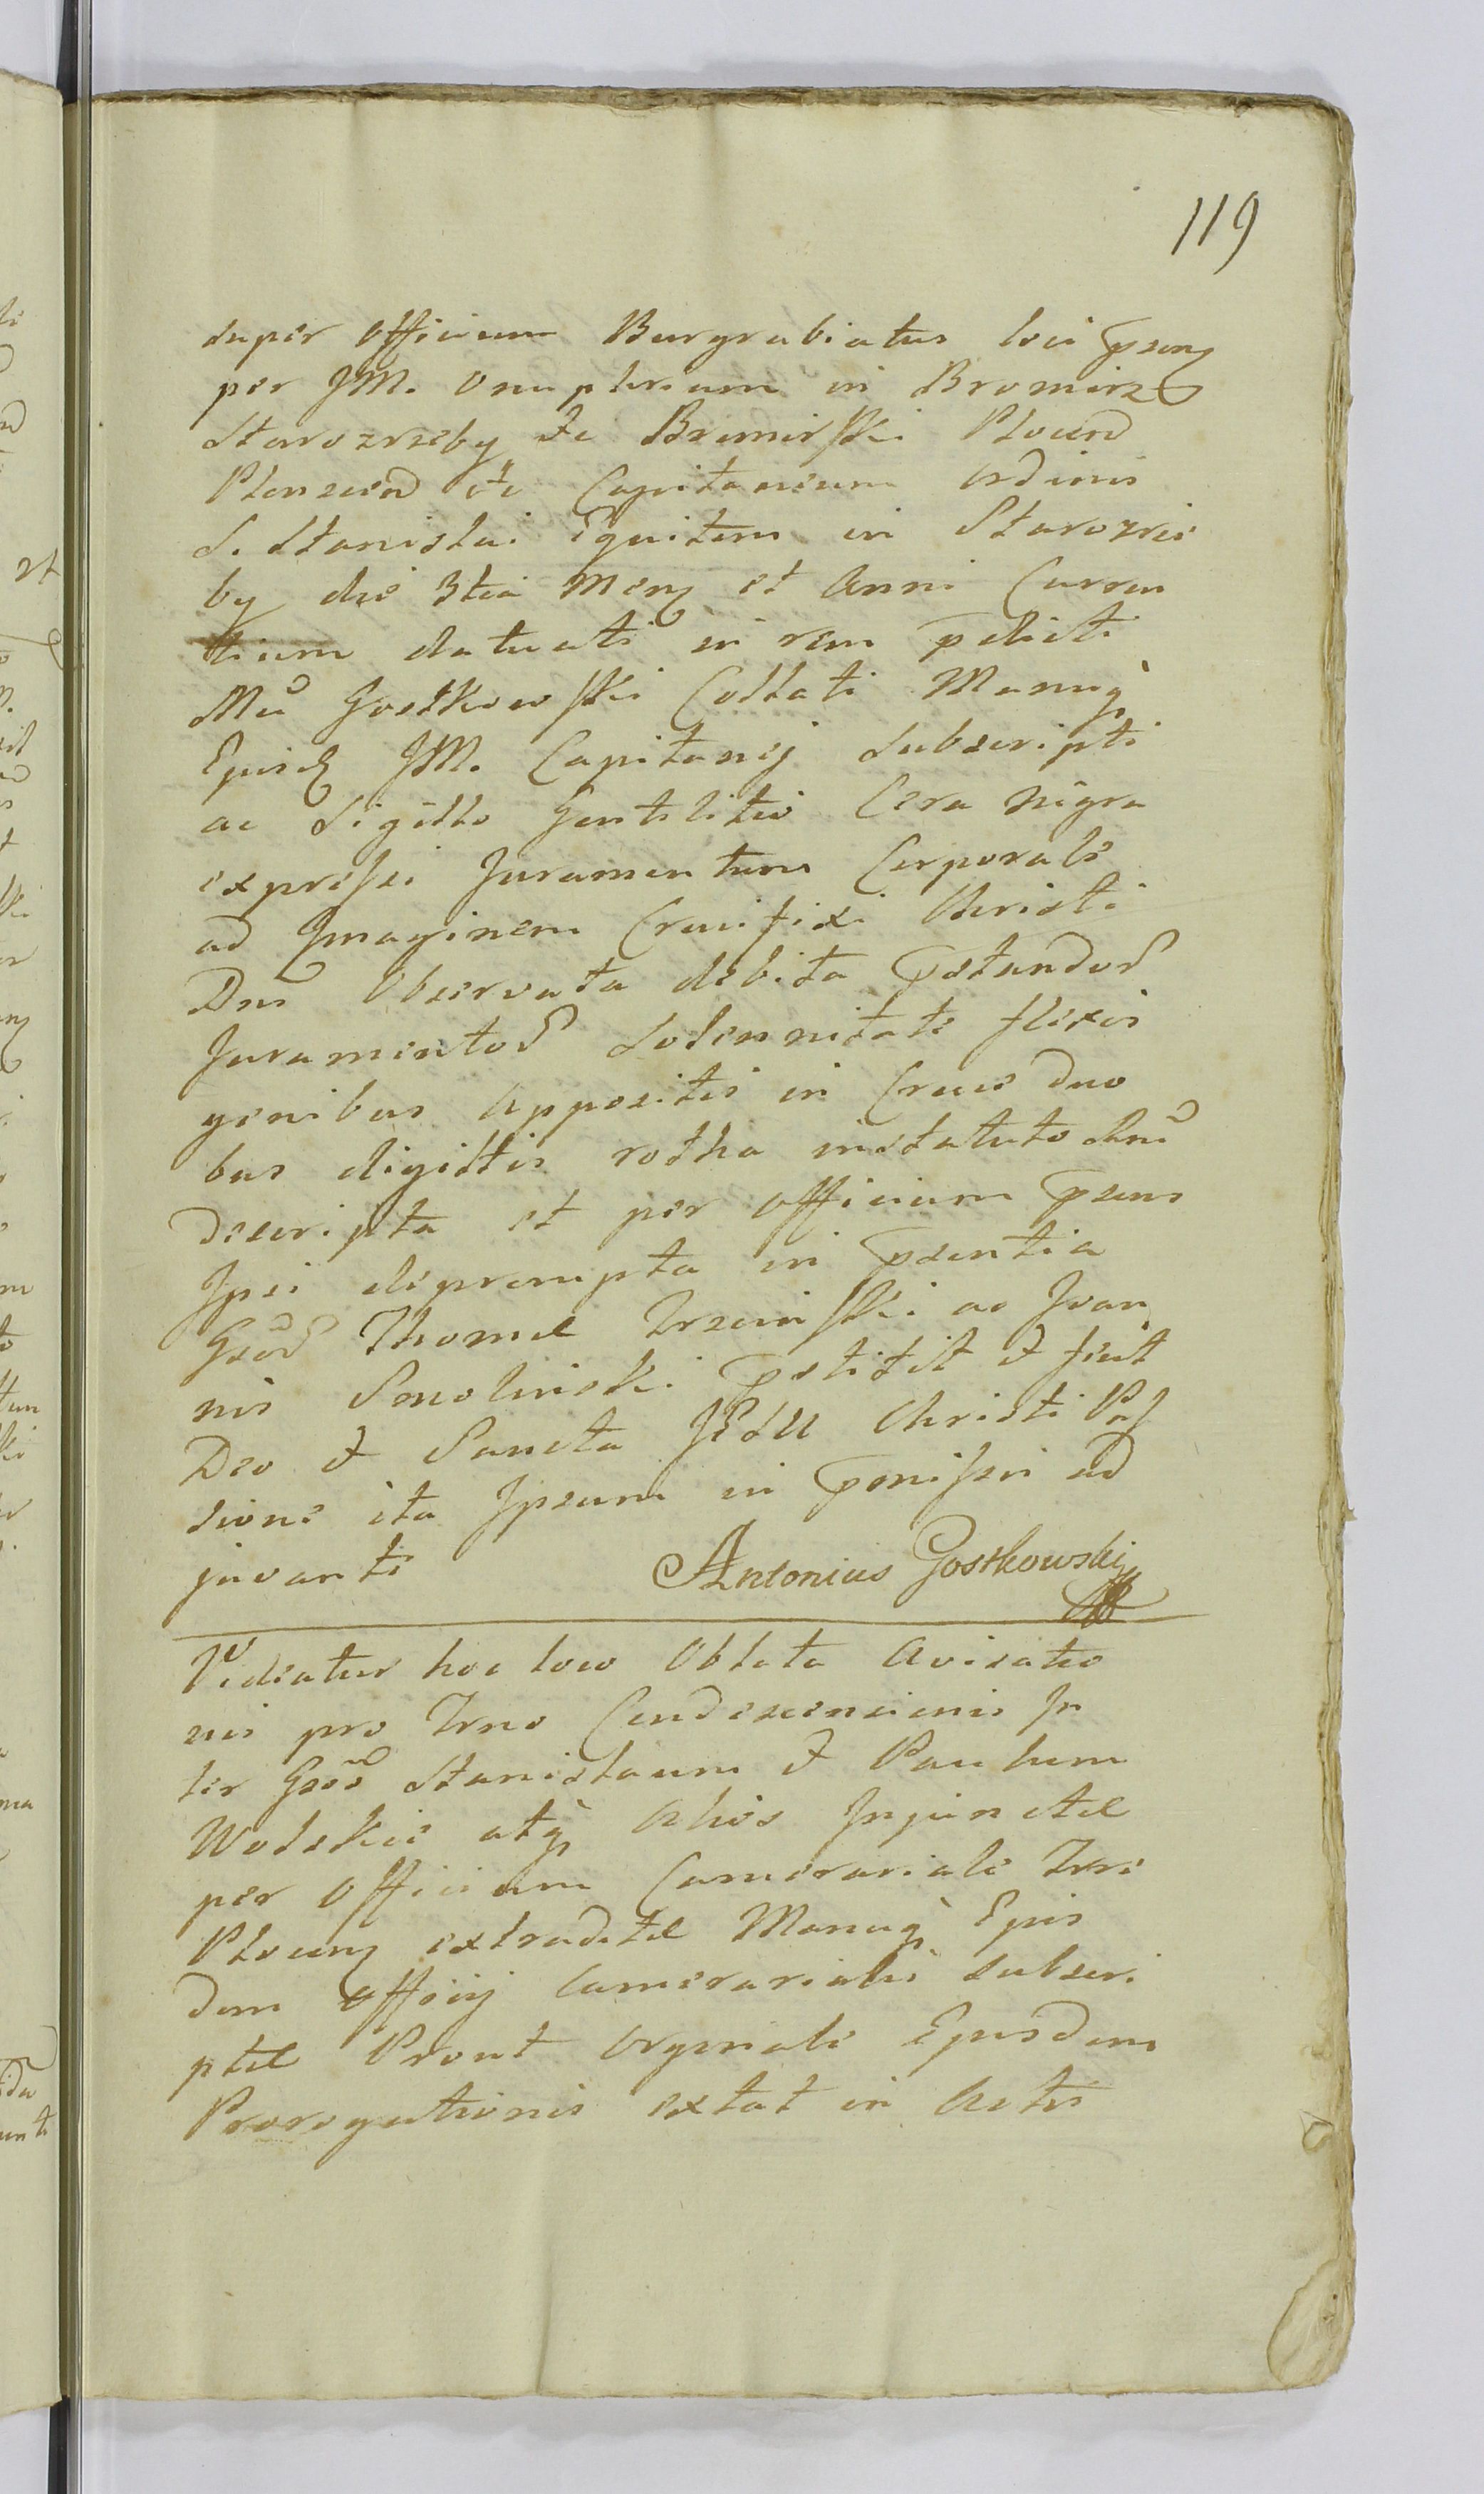 119
super Officium Burgrabiatus loci psens
per JM. Onuphrium in Bromirz
Starozrzeby &c Bromirski Plocen
Plonscen &c Capitaneum Ordinis
S. Stanislai Equitem in Starozrze
by die 3tia Mens et Anni Curren
tium datuati in rem pdicti
Mci Gostkowski Collati Manuq
Ejusd JM. Capitanej Subscripti
ac Sigillo Gentilitio Cera Nigra
expressi Juramentum Corporale
ad Imaginem Crucifixi Christi
Dni Observata debita pstandor
Juramentor Solennitate flexis
genibus Appositis in Cruce duo
bus digittis rotha in statuto
descripta et per Officium psens
Ipsi deprompta in psentia
Gsor Thomæ Trzcinski ac Joan
nis Smolinski pstitit & sint
Deo & Sancta JESU Christi Pas
sione ita Ipsum in pmissis ad
juvante
Antonius Gostkowski
Videatur hoc loco Oblata Avisatio
nis pro Trno Condescensionis In
ter Gsos Stanislaum & Paulum
Wolskie atq Alios Injunctæ
per Officium Camerariale Trre
Plocens extraditæ Manuq Ejus
dem Officij Camerarialis Subscri
ptæ Prout Orginale Ejusdem
Prorogationis extat in Actis